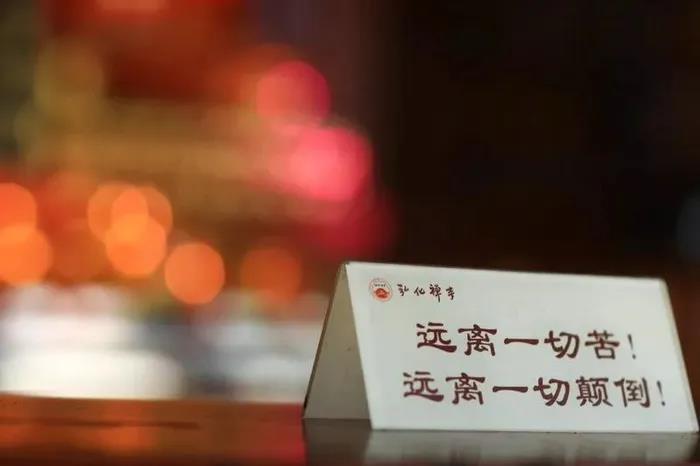 弘化禅寺
远离一切苦!
远离一切颠倒!